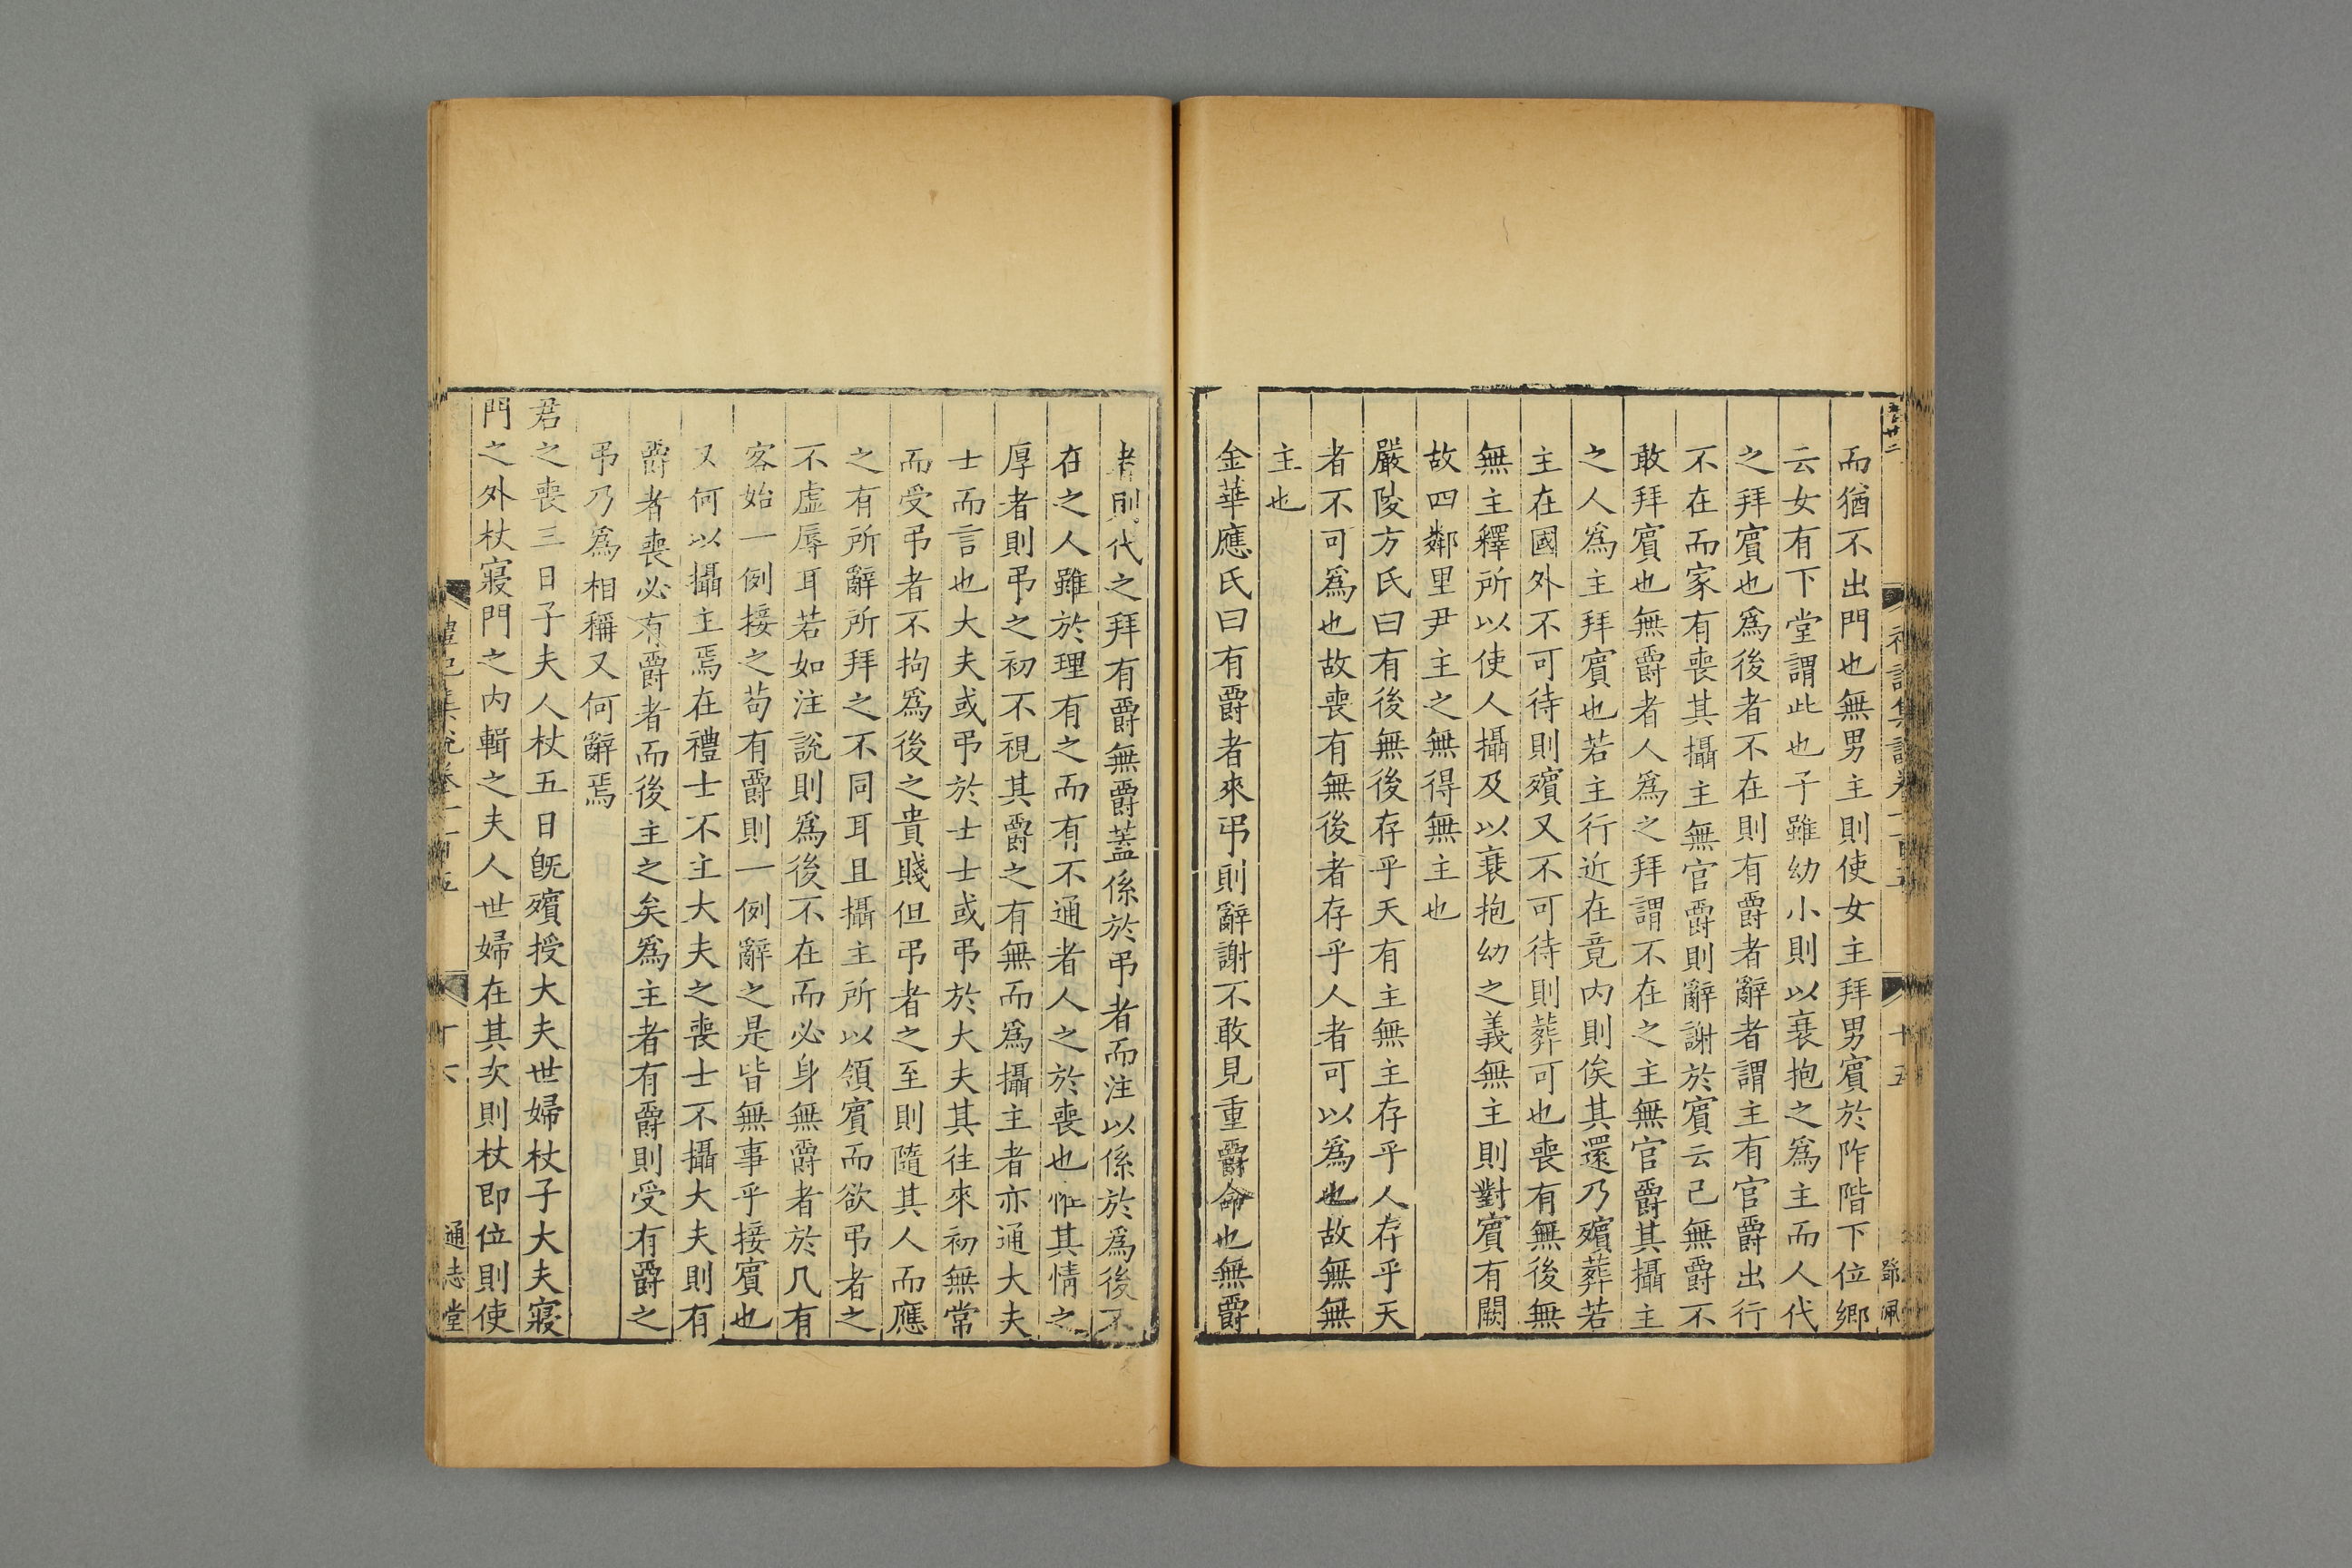 而猶不出門也無男主則使女主拜男賔於阼階下位鄉
云女有下堂謂此也子雖幼小則以衰抱之爲主而人代
之拜賔也爲後者不在則有爵者辭者謂主有官爵出行
不在而家有喪其攝主無官爵則辭謝於賔云己無爵不
敢拜賔也無爵者人爲之拜謂不在之主無官爵其攝主
之人爲主拜賔也若主行近在竟内則俟其還乃殯葬若
主在國外不可待則殯又不可待則葬可也喪有無後無
無主釋所以使人攝及以衰抱幼之義無主則對賔有闕
故四鄰里尹主之無得無主也
嚴陵方氏曰有後無後存乎天有主無主存乎人存乎天
者不可爲也故喪有無後者存乎人者可以爲也故無無
主也
金華應氏曰有爵者來弔則辭謝不敢見重爵命也無爵
者則代之拜有爵無爵蓋係於弔者而注以係於爲後不
在之人雖於理有之而有不通者人之於喪也惟其情之
厚者則弔之初不視其爵之有無而爲攝主者亦通大夫
士而言也大夫或弔於士士或弔於大夫其往來初無常
而受弔者不拘爲後之貴賤但弔者之至則隨其人而應
之有所辭所拜之不同耳且攝主所以領賔而欲弔者之
不虛辱耳若如注說則爲後不在而必身無爵者於凡有
客始一例接之苟有爵則一例辭之是皆無事乎接賔也
又何以攝主焉在禮士不主大夫之喪士不攝大夫則有
爵者喪必有爵者而後主之矣爲主者有爵則受有爵之
弔乃爲相稱又何辭焉
君之喪三日子夫人杖五日旣殯授大夫世婦杖子大夫寢
門之外杖寢門之内輯之夫人世婦在其次則杖即位則使
禮記集說卷一百五
十六
通志堂